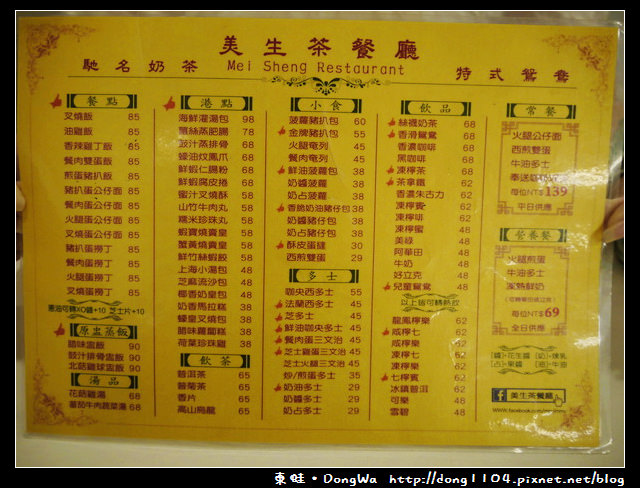 美生茶餐廳
馳名奶茶 Mei Sheng Restaurant 特式鴛鴦
餐點
叉燒飯 85
油雞飯 85
香辣雞丁飯 85
餐肉雙蛋飯 85
煎蛋豬扒飯 85
豬扒蛋公仔面 85
餐肉蛋公仔面 85
火腿蛋公仔面 85
叉燒蛋公仔面 85
豬扒蛋撈丁 85
餐肉蛋撈丁 85
火腿蛋撈丁 85
叉燒蛋撈丁 85
蔥油可轉XO醬+10 芝士片+10
原盅蒸飯
腊味盅飯 90
豉汁排骨盅飯 90
北菇雞球盅飯 90
湯品
花菇雞湯 68
蕃茄牛肉蔬菜湯 68
港點
海鮮灌湯包 98
薑絲蒸肥腸 78
豉汁蒸排骨 68
蠔油炆鳳爪 68
鮮蝦仁腸粉 68
鮮蝦腐皮捲 68
蜜汁叉燒酥 58
山竹牛肉丸 58
糯米珍珠丸 58
蝦寶燒賣皇 58
蟹黃燒賣皇 58
鮮竹絲蝦餃 58
上海小湯包 48
芝麻流沙包 48
椰香奶皇包 48
奶香馬拉糕 38
蠔皇叉燒包 38
腊味蘿蔔糕 38
荷葉珍珠雞 38
飲茶
普洱茶 65
普菊茶 65
香片 65
高山烏龍 65
小食
菠蘿豬扒包 60
金牌豬扒包 55
火腿奄列 45
餐肉奄列 45
鮮油菠蘿包 38
奶醬菠蘿 38
奶占菠蘿 38
香脆奶油豬仔包 38
奶醬豬仔包 38
奶占豬仔包 38
酥皮蛋撻 30
西煎雙蛋 29
多士
咖央西多士 55
法蘭西多士 45
芝多士 45
鮮油咖央多士 45
餐肉蛋三文治 45
芝士雞蛋三文治 45
芝士火腿三文治 45
炒/煎蛋多士 35
奶油多士 29
奶醬多士 29
奶占多士 29
飲品
絲襪奶茶 68
香滑鴛鴦 68
香濃咖啡 68
黑咖啡 68
凍檸茶 68
茶拿鐵 62
香濃朱古力 62
凍檸賓 62
凍檸啡 68
凍檸蜜 48
美綠 48
阿華田 48
牛奶 48
好立克 48
兒童鴛鴦 48
以上皆可轉熱飲
龍鳳檸樂 62
咸檸七 62
咸檸樂 62
凍檸七 62
凍檸樂 62
七檸賓 62
冰鎮普洱 62
可樂 48
雪碧 48
常餐
火腿公仔面
西煎雙蛋
牛油多士
每位NT$139
平日供應
營養餐
火腿煎蛋
牛油多士
每位NT$69
全日供應
[醬]-花生醬 [奶]-煉乳
[占]-果醬 [油]-牛油
美生茶餐廳
東旺・DongWa http://dong1104.pixnet.net/blog